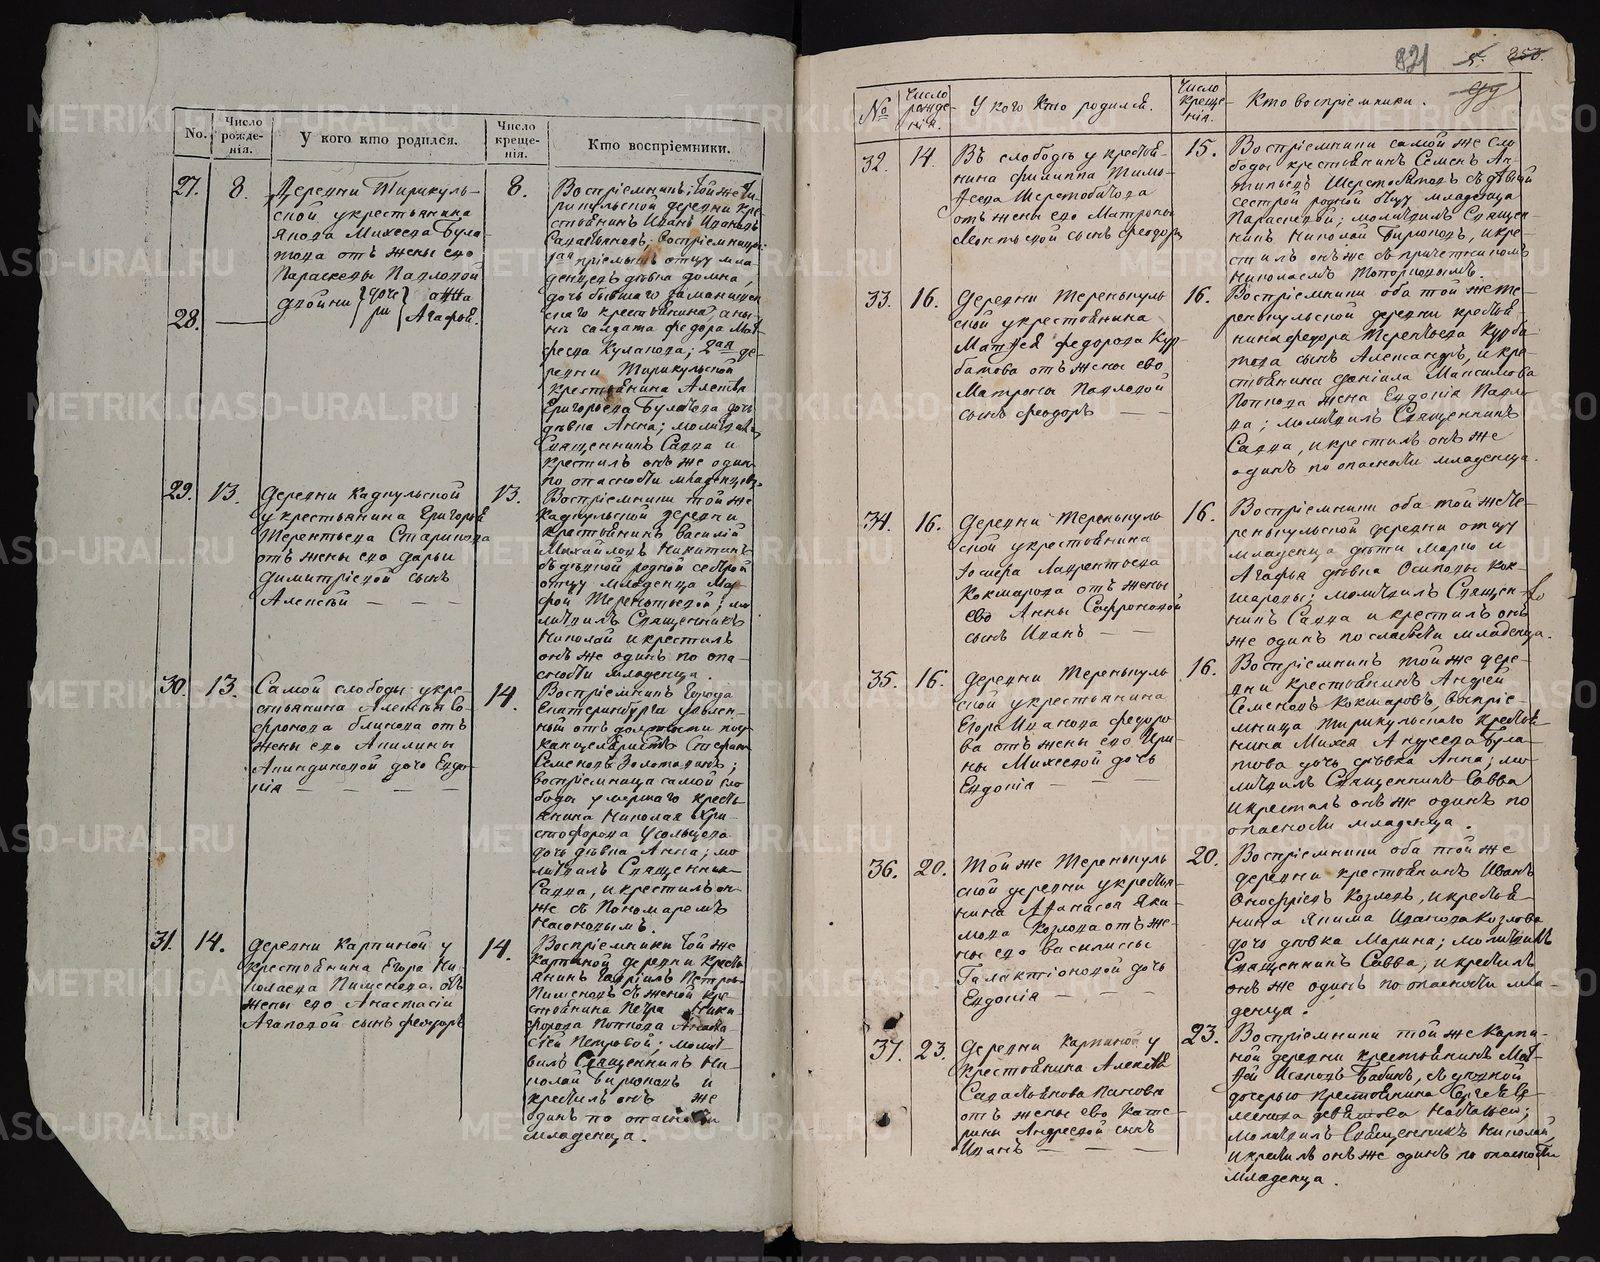 No.
Число рожде-нія.
У кого кто родился.
Число креще-нія.
Кто воспріемники.
27.
8.
Деревни Тирикуль-
ской, у крестьянина
Якова Михеева Була-
това отъ жены его
Параскевы Павловой
двойни дочери Анна
Агафья.
28.
8.
Воспріемники: той же Ти-
рикульской деревни кре-
стьянинъ Иванъ Ивановъ
отцу мла-
денцевъ дѣвка Домна,
дочь бывшаго
крестьянина, а ны-
нѣ солдата Федора Мат-
феева Кулакова; 2я де-
ревни Тирикульской
крестьянина Алексѣя
Григорьева Булатова дочь
дѣвка Анна; молитвилъ
Священникъ Савва и
крестилъ онъ же одинъ
по опасности младенцевъ.
29.
13.
Деревни Кадкульской
у крестьянина Григорья
Терентьева Старикова
отъ жены его Дарьи
Димитріевой сынъ
Алексѣй
13.
Воспріемники той же
Кадкульской деревни
крестьянинъ Василій
Михайловъ Никитинъ
съ дѣвкой родной сестрой
отцу младенца Мар-
фой Терентьевой; мо-
литвилъ Священникъ
Николай и крестилъ
онъ же одинъ по опа-
сности младенца.
30.
13.
Самой слободы у кре-
стьянина Алексѣя Со-
фронова Блинова отъ
жены его Акилины
Акиндиновой дочь Евдо-
кія
14.
Воспріемникъ города
Екатеринбурга уволен-
ный отъ должности под-
канцеляристъ
Семеновъ Золотавинъ;
воспріемница самой сло-
боды умершаго кресть-
янина Николая Хри-
стофорова Усольцева
дочь дѣвка Анна; мо-
литвилъ Священникъ
Савва, и крестилъ он-
же съ Пономаремъ
31.
14.
Деревни Карпиной у
крестьянина Егора Ни-
колаева Пименова отъ
жены его Анастасіи
Агаповой сынъ Феодоръ
14.
Воспріемники той же
Карпиной деревни кресть-
янинъ Гавріилъ Петровъ
Пименовъ съ женой кре-
стьянина Петра Ники-
форова Попкова Анаста-
сіей Петровой; молит-
вилъ Священникъ Ни-
колай Бирюковъ и
крестилъ онъ же
одинъ по опасности
младенца.
821
№
Число рожде-нія.
У кого Кто родился.
Число креще-нія.
Кто воспріемники.
32.
14.
Въ слободѣ у крестья-
нина Филиппа Тимо-
феева Шерстобитова
отъ жены его Матроны
сынъ Феодоръ
15.
Воспріемники самой же сло-
боды крестьянинъ Семенъ Ан-
типьевъ Шерстобитовъ съ дѣвкой
сестрой родной отцу младенца
Параскевой; молитвилъ Священ-
никъ Николай Бирюковъ, и кре-
стилъ онъ же съ причетникомъ
Николаемъ Топорковымъ.
33.
16.
Деревни Теренькуль-
ской у крестьянина
Матфея Федорова Кур-
батова отъ жены его
Матроны Павловой
сынъ Феодоръ
16.
Воспріемники оба той же Те-
ренкульской деревни крестья-
нина Федора Терентьева Курба-
това сынъ Александръ, и кре-
стьянина Даніила Максимова
Попкова жена Евдокія Павло-
ва; молитвилъ Священникъ
Савва, и крестилъ онъ же
одинъ по опасности младенца.
34.
16.
Деревни Теренькуль-
ской у крестьянина
Лаврентьева
Кокшарова отъ жены
его Анны Софроновой
сынъ Иванъ
16.
Воспріемники оба той же Те-
ренькульской деревни отцу
младенца дѣти Марко и
Агафья дѣвка Осиповы Кок-
шаровы; молитвилъ Священ-
никъ Савва и крестилъ онъ
же одинъ по слабости младенца.
35.
16.
Деревни Теренькуль-
ской у крестьянина
Егора Иванова Федоро-
ва отъ жены его Ири-
ны Михеевой дочь
Евдокія
16.
Воспріемникъ той же дере-
вни крестьянинъ Андрей
Семеновъ Кокшаровъ, воспріе-
мница Тирикульскаго крестья-
нина Михея Була-
това дочь дѣвка Анна; мо-
литвилъ Священникъ Савва
и крестилъ онъ же одинъ по
опасности младенца.
36.
20.
Той же Теренькуль-
ской деревни у крестья-
нина Афанасья Яки-
мова Козлова отъ же-
ны его Василисы
Галактіоновой дочь
Евдокія
20.
Воспріемники оба той же
деревни крестьянинъ Иванъ
Онофріевъ Козловъ, и крестья-
нина Якима Иванова Козлова
дочь дѣвка Марина; молитвилъ
Священникъ Савва, и крестилъ
онъ же одинъ по опасности мла-
денца.
37.
23.
Деревни Карпиной у
крестьянина Алексѣя
Савватьянова Панова
отъ жены его Кате-
рины Андреевой сынъ
Иванъ
23.
Воспріемники той же Карпи-
ной деревни крестьянинъ Мат-
фей Исаковъ Бабинъ, съ
дочерью крестьянина Сергея
молитвилъ Священникъ Николай
и крестилъ онъ же одинъ по опасности
младенца.